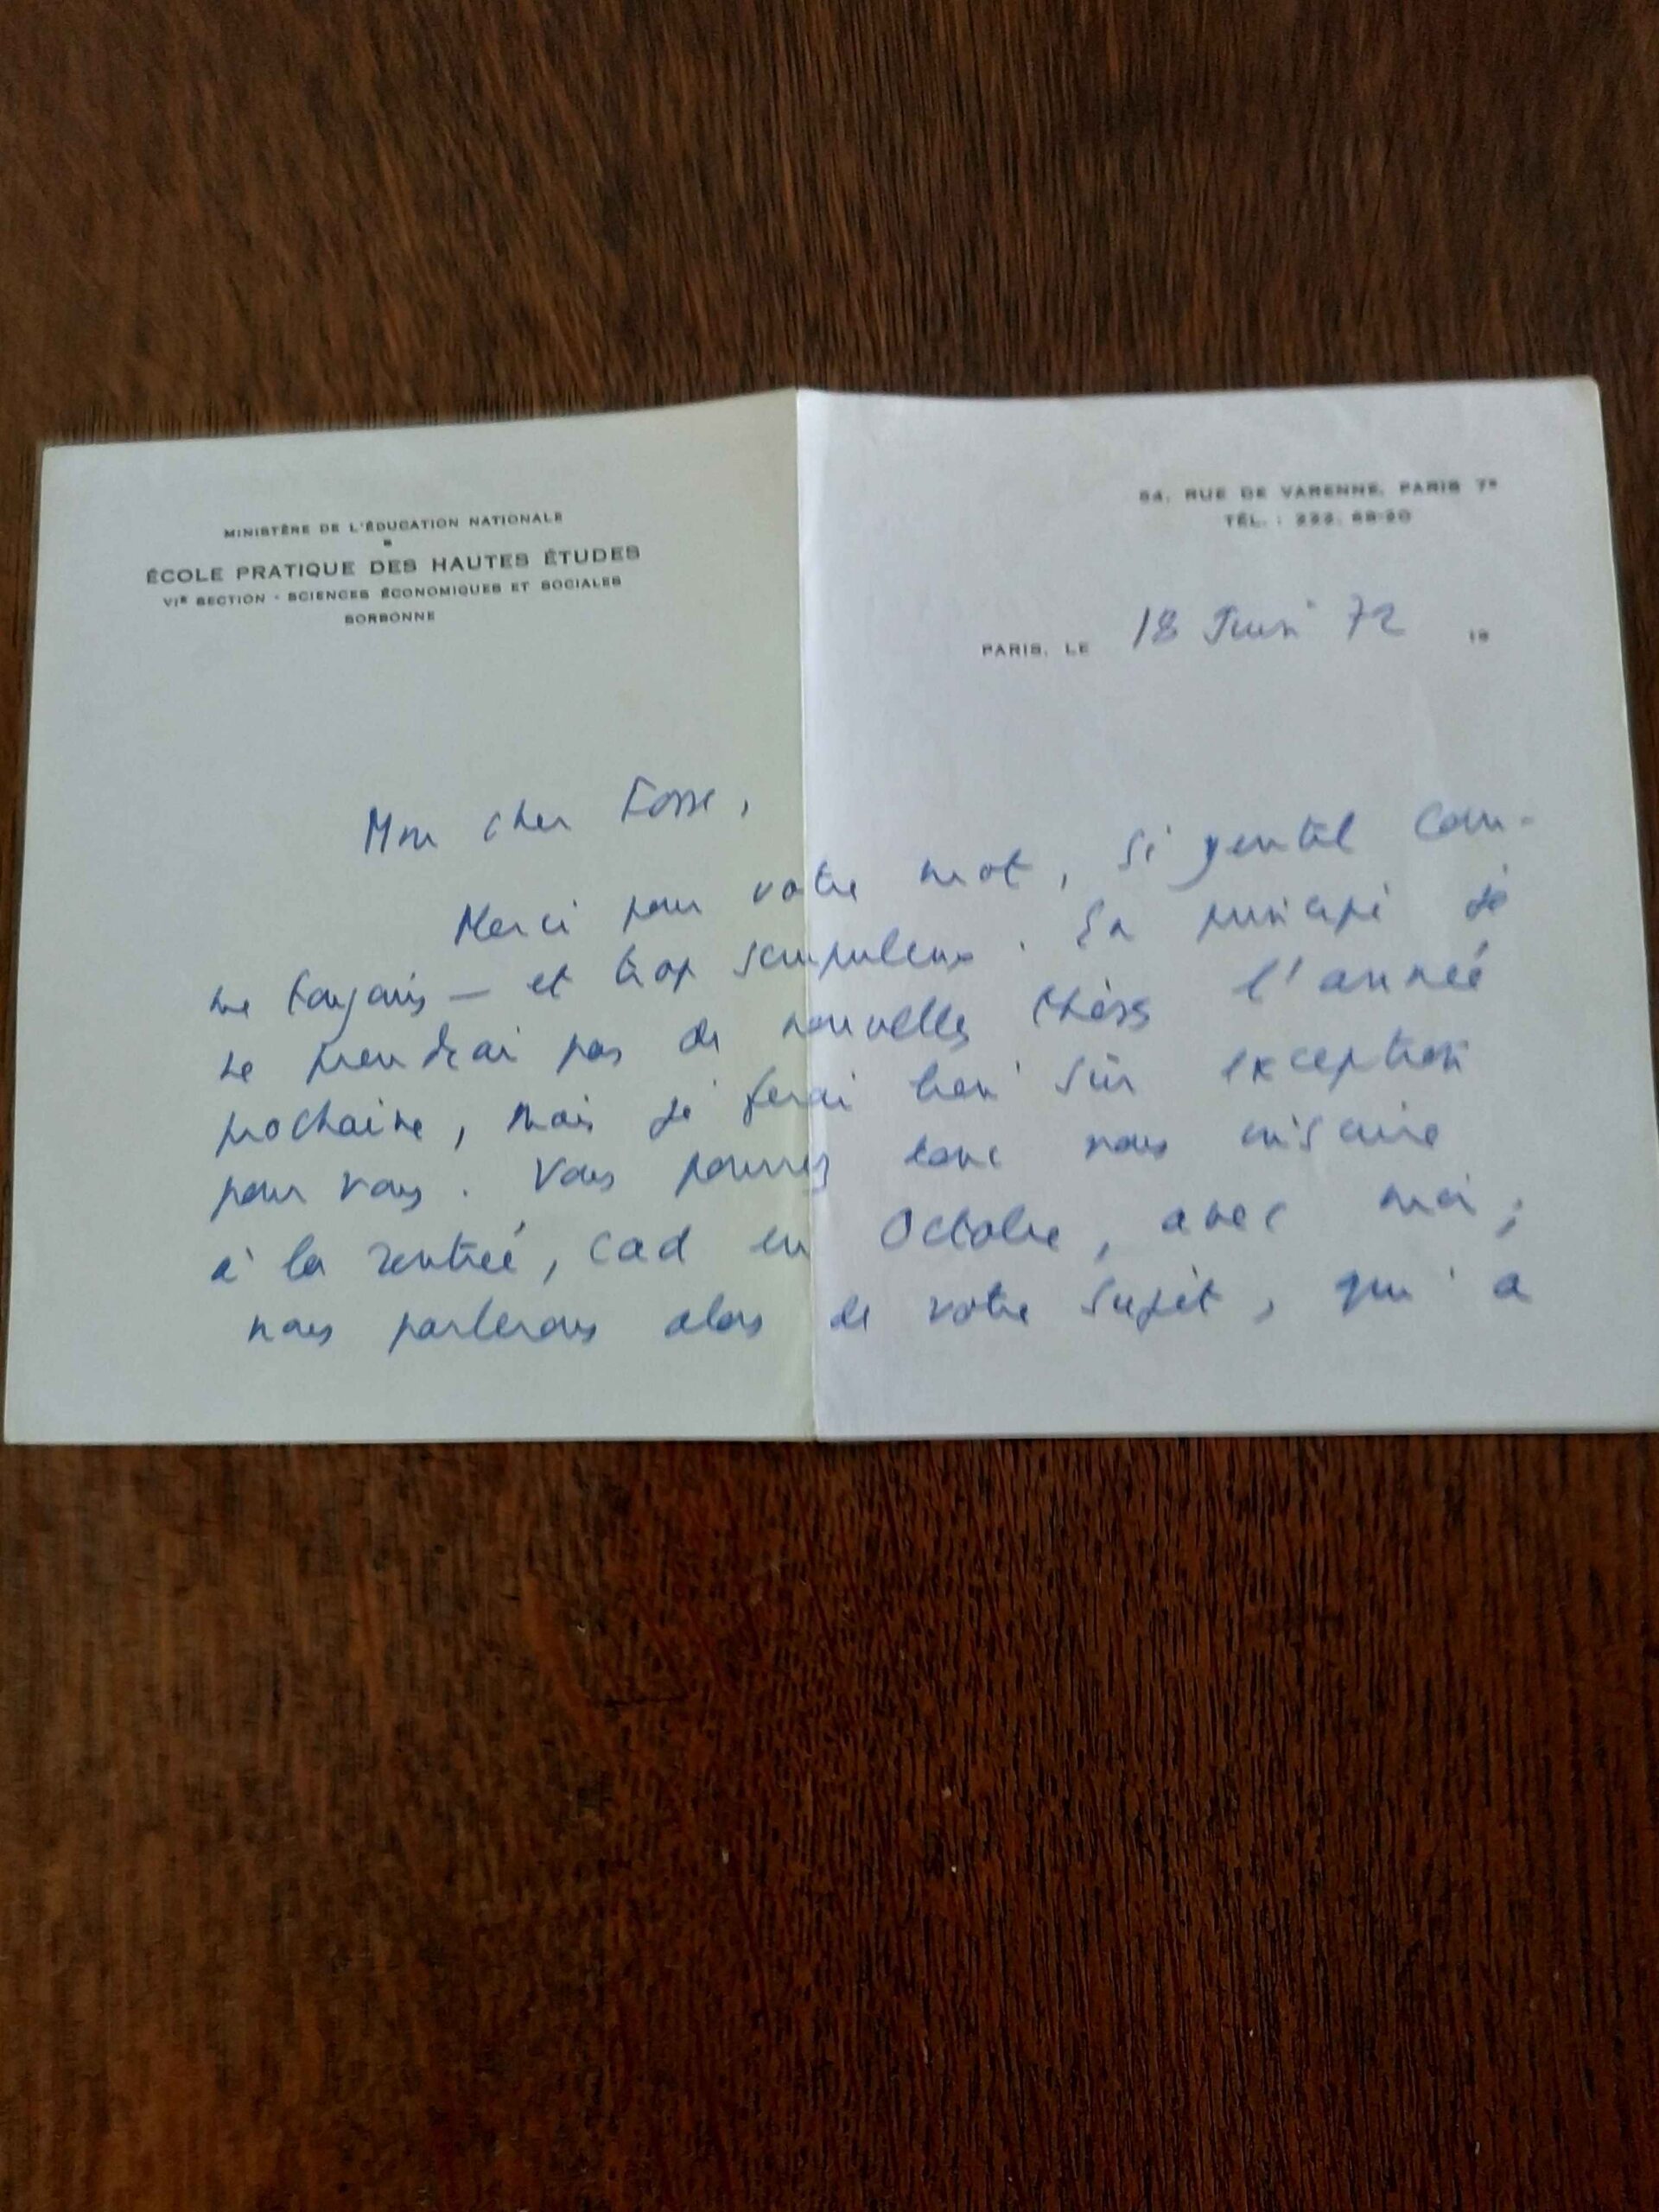 MINISTÈRE DE L'ÉDUCATION NATIONALE
ÉCOLE PRATIQUE DES HAUTES ÉTUDES
VIE SECTION - SCIENCES ÉCONOMIQUES ET SOCIALES
SORBONNE
54, RUE DE VARENNE, PARIS 7e
TÉL. : 222. 68-20
PARIS, LE 18 Juin 72 19
Mon cher
Merci pour votre mot, si gentil com-
me toujours — et trop scrupuleux. En principe je
ne prendrai pas de nouvelles thèses l'année
prochaine, mais je ferai bien sûr exception
pour vous. Vous pourrez donc vous inscrire
à la rentrée, cad en Octobre, avec moi ;
nous parlerons alors de votre sujet, qui a